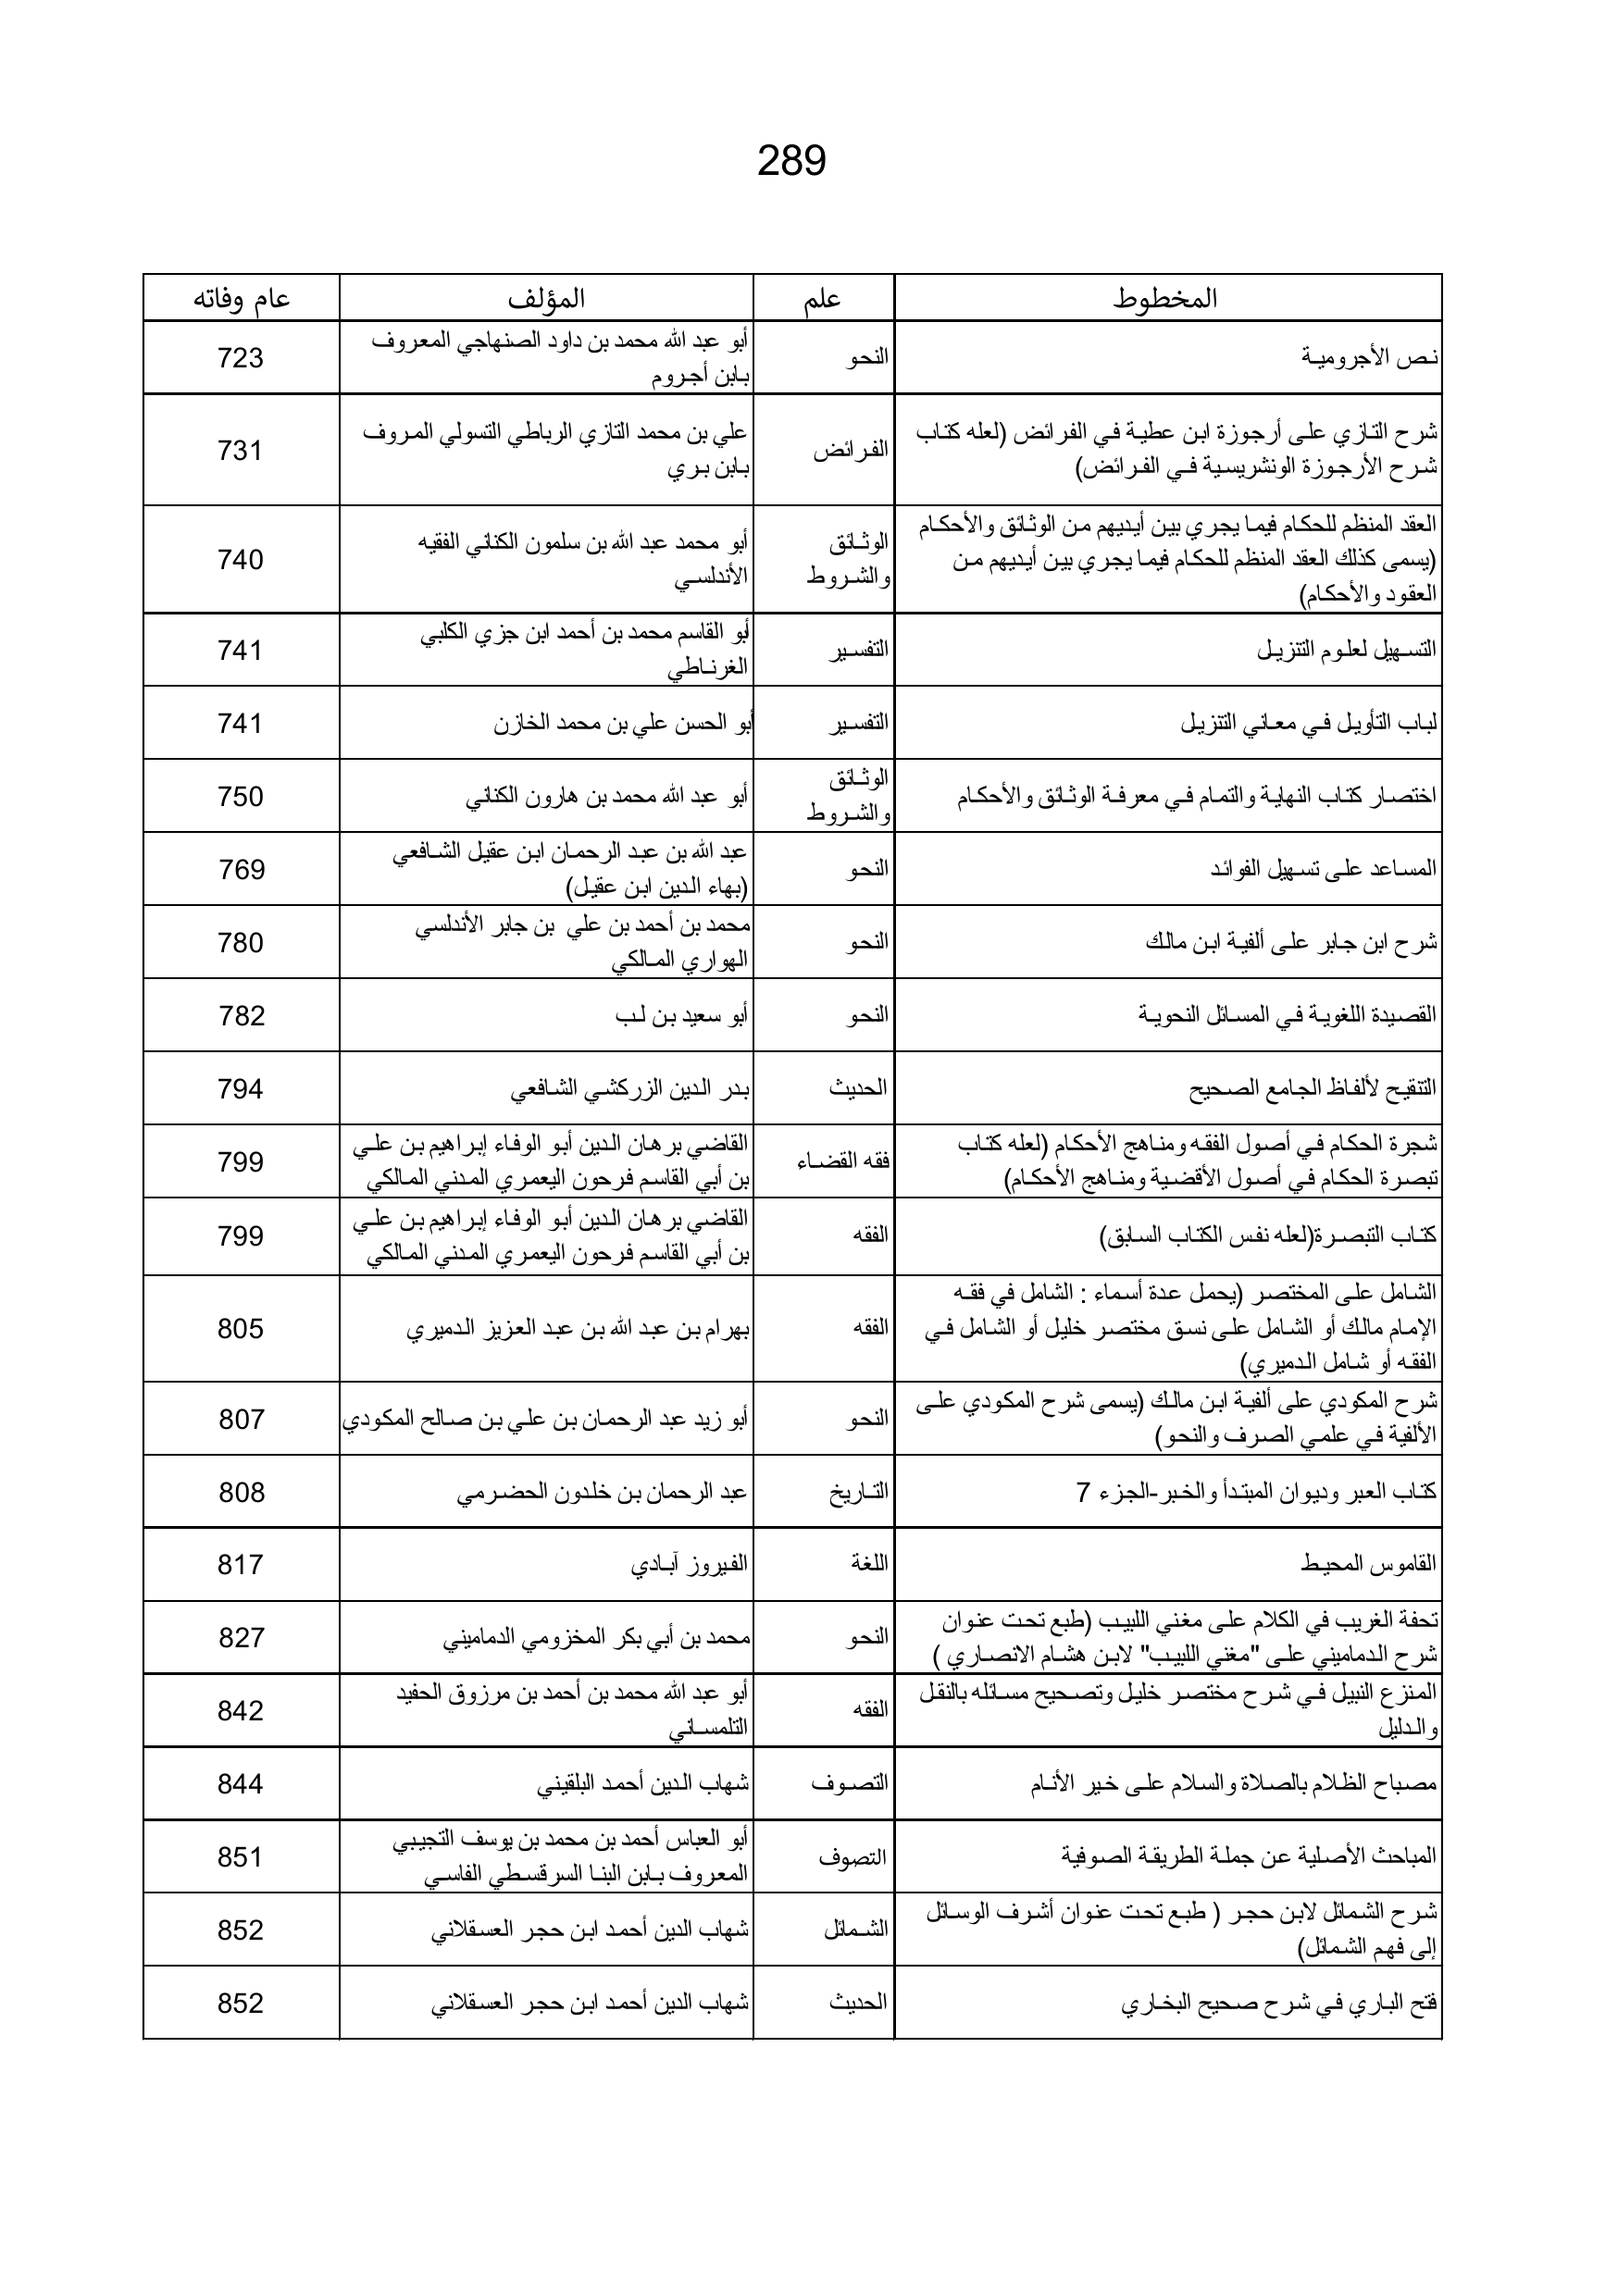 289
المخطوط علم المؤلف عام وفاته
نص الأجرومية النحو أبو عبد الله محمد بن داود الصنهاجي المعروف
بابن أجروم 723
شرح التازي على أرجوزة ابن عطية في الفرائض (لعله كتاب
شرح الأرجوزة الونشريسية في الفرائض) الفرائض علي بن محمد التازي الرباطي التسولي المروف
بابن بري 731
العقد المنظم للحكام فيما يجري بين أيديهم من الوثائق والأحكام
(يسمى كذلك العقد المنظم للحكام فيما يجري بين أيديهم من
العقود والأحكام) الوثائق
والشروط أبو محمد عبد الله بن سلمون الكناني الفقيه
الأندلسي 740
التسهيل لعلوم التنزيل التفسير أبو القاسم محمد بن أحمد ابن جزي الكلبي
الغرناطي 741
لباب التأويل في معاني التنزيل التفسير أبو الحسن علي بن محمد الخازن 741
اختصار كتاب النهاية والتمام في معرفة الوثائق والأحكام الوثائق
والشروط أبو عبد الله محمد بن هارون الكناني 750
المساعد على تسهيل الفوائد النحو عبد الله بن عبد الرحمان ابن عقيل الشافعي
(بهاء الدين ابن عقيل) 769
شرح ابن جابر على ألفية ابن مالك النحو محمد بن أحمد بن علي بن جابر الأندلسي
الهواري المالكي 780
القصيدة اللغوية في المسائل النحوية النحو أبو سعيد بن لب 782
التنقيح لألفاظ الجامع الصحيح الحديث بدر الدين الزركشي الشافعي 794
شجرة الحكام في أصول الفقه ومناهج الأحكام (لعله كتاب
تبصرة الحكام في أصول الأقضية ومناهج الأحكام) فقه القضاء القاضي برهان الدين أبو الوفاء إبراهيم بن علي
بن أبي القاسم فرحون اليعمري المدني المالكي 799
كتاب التبصرة(لعله نفس الكتاب السابق) الفقه القاضي برهان الدين أبو الوفاء إبراهيم بن علي
بن أبي القاسم فرحون اليعمري المدني المالكي 799
الشامل على المختصر (يحمل عدة أسماء : الشامل في فقه
الإمام مالك أو الشامل على نسق مختصر خليل أو الشامل في
الفقه أو شامل الدميري) الفقه بهرام بن عبد الله بن عبد العزيز الدميري 805
شرح المكودي على ألفية ابن مالك (يسمى شرح المكودي على
الألفية في علمي الصرف والنحو) النحو أبو زيد عبد الرحمان بن علي بن صالح المكودي 807
كتاب العبر وديوان المبتدأ والخبر-الجزء 7 التاريخ عبد الرحمان بن خلدون الحضرمي 808
القاموس المحيط اللغة الفيروز آبادي 817
تحفة الغريب في الكلام على مغني اللبيب (طبع تحت عنوان
شرح الدماميني على "مغني اللبيب" لابن هشام الانصاري ) النحو محمد بن أبي بكر المخزومي الدماميني 827
المنزع النبيل في شرح مختصر خليل وتصحيح مسائله بالنقل
والدليل الفقه أبو عبد الله محمد بن أحمد بن مرزوق الحفيد
التلمساني 842
مصباح الظلام بالصلاة والسلام على خير الأنام التصوف شهاب الدين أحمد البلقيني 844
المباحث الأصلية عن جملة الطريقة الصوفية التصوف أبو العباس أحمد بن محمد بن يوسف التجيبي
المعروف بابن البنا السرقسطي الفاسي 851
شرح الشمائل لابن حجر ( طبع تحت عنوان أشرف الوسائل
إلى فهم الشمائل) الشمائل شهاب الدين أحمد ابن حجر العسقلاني 852
فتح الباري في شرح صحيح البخاري الحديث شهاب الدين أحمد ابن حجر العسقلاني 852